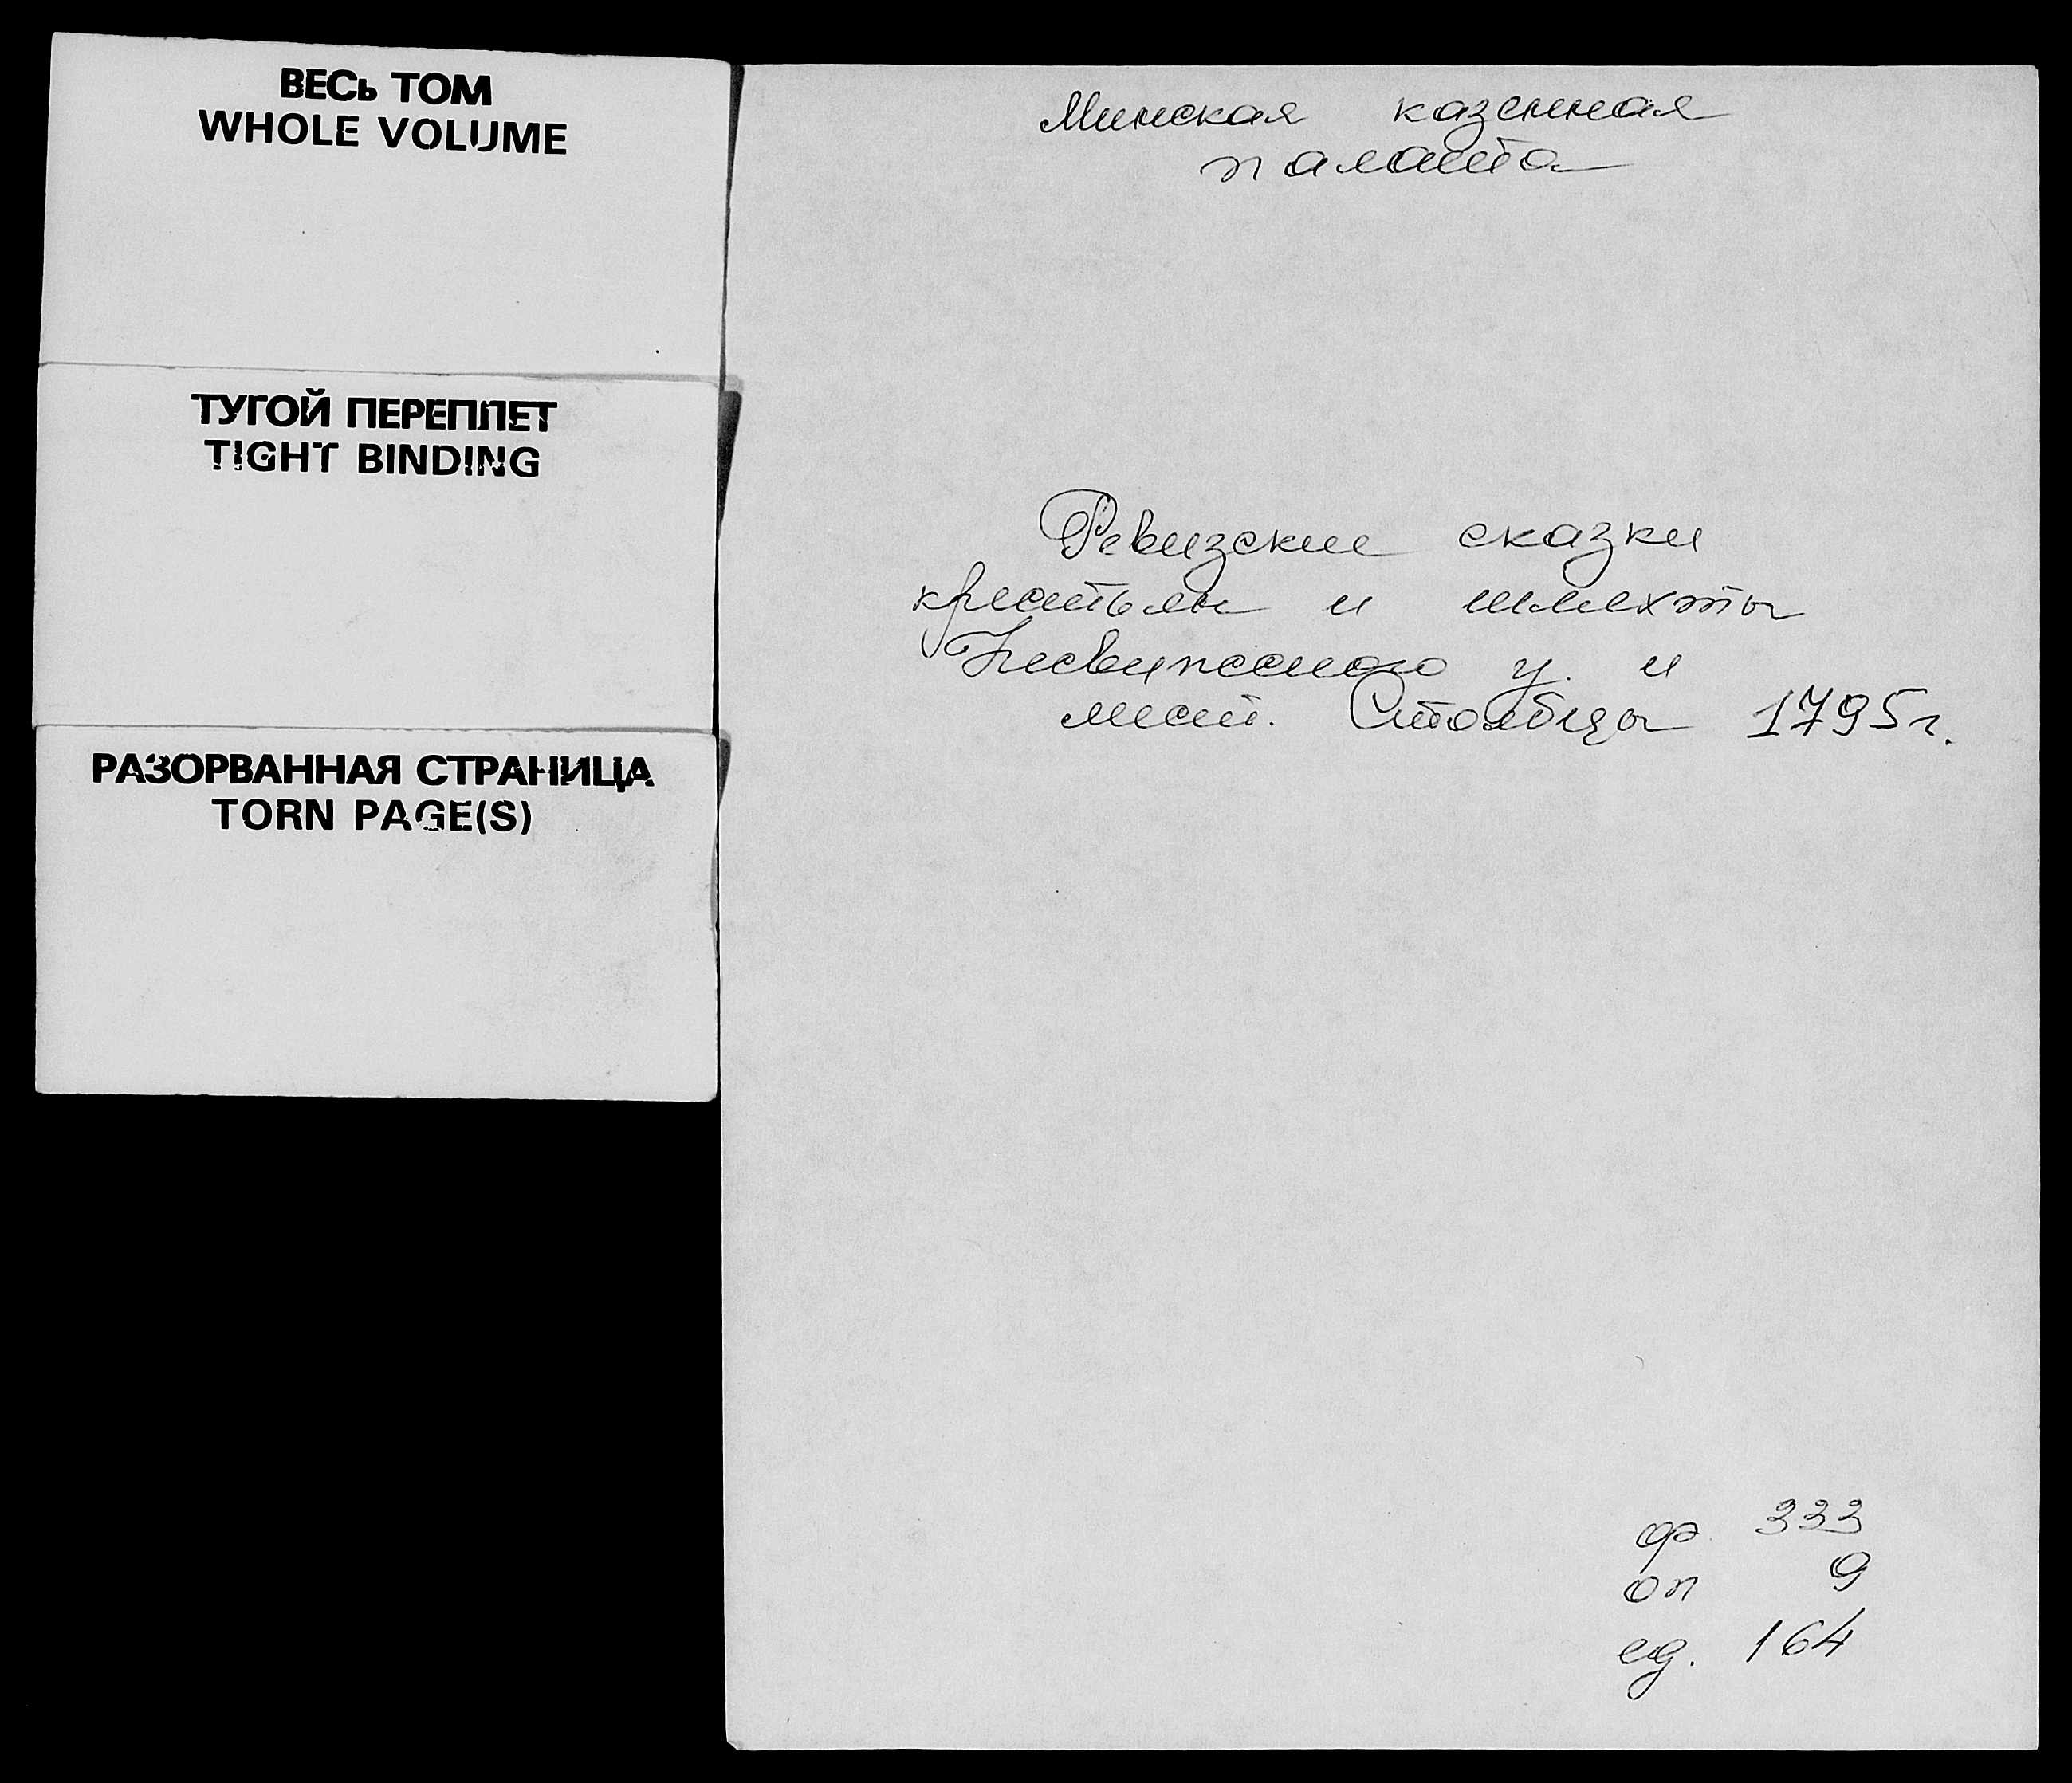 ВЕСЬ ТОМ
WHOLE VOLUME
ТУГОЙ ПЕРЕПЛЕТ
TIGHT BINDING
РАЗОРВАННАЯ СТРАНИЦА
TORN PAGE(S)
Минская казенная
палата
Ревизские сказки
крестьян и шляхты
Несвижского у. и
мест. Столбцы 1795 г.
ф. 333
оп 9
ед. 164